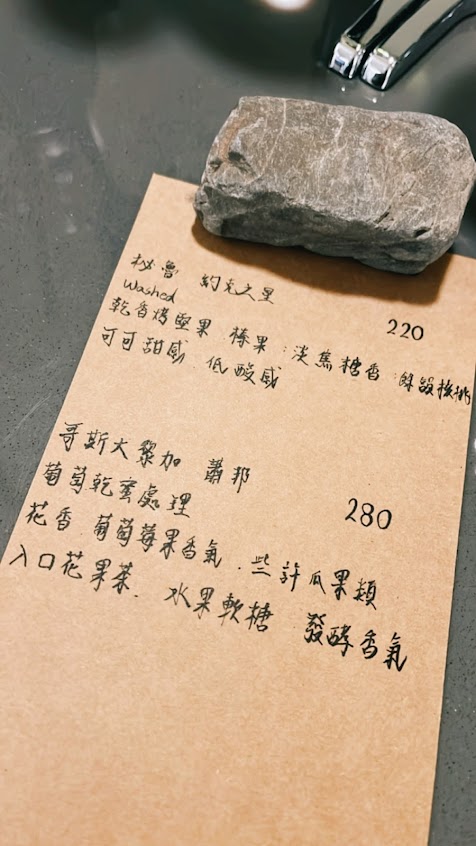 秘魯 約克之星
Washed 220
乾香烤堅果 榛果：淡焦糖香：餘韻核桃
可可甜感．低酸感
哥斯大黎加 蕭邦
葡萄乾蜜處理 280
花香．葡萄莓果香氣．些許瓜果類
入口花果茶．水果軟糖 發酵香氣